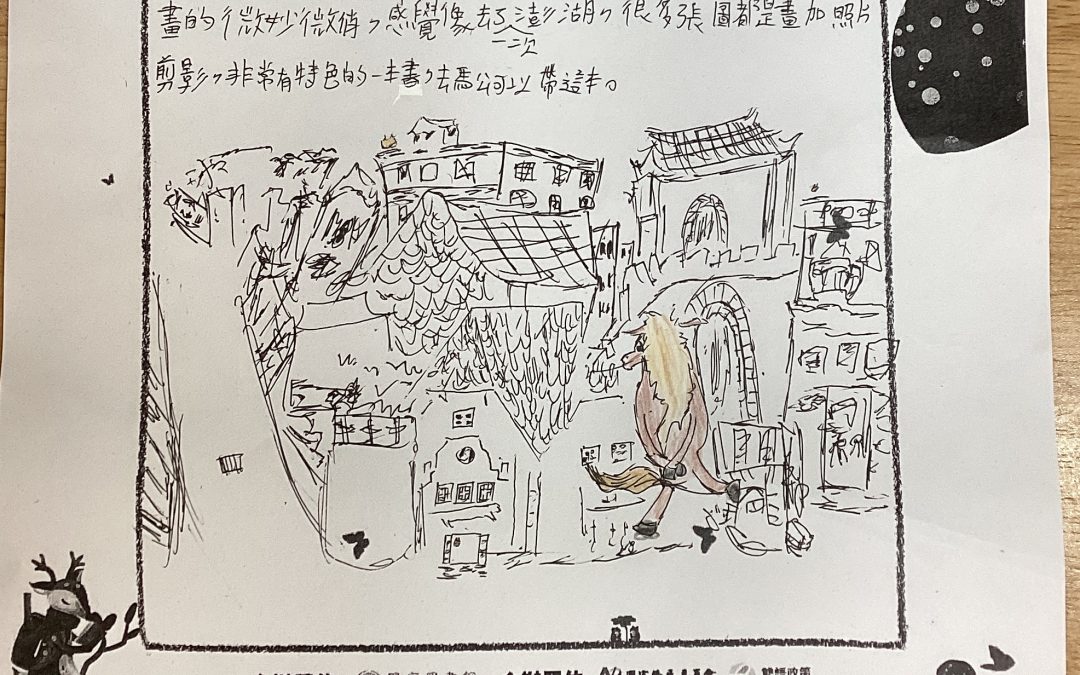 畫的微妙微俏，感覺像去了澎湖，很多張圖都是畫加照片
一次
剪影，非常有特色的一本書，去馬公可以帶這本。
雙語政策